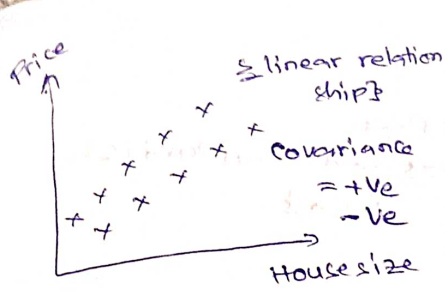 Price
{linear relation
ship}
covariance
= +ve
- ve
House size